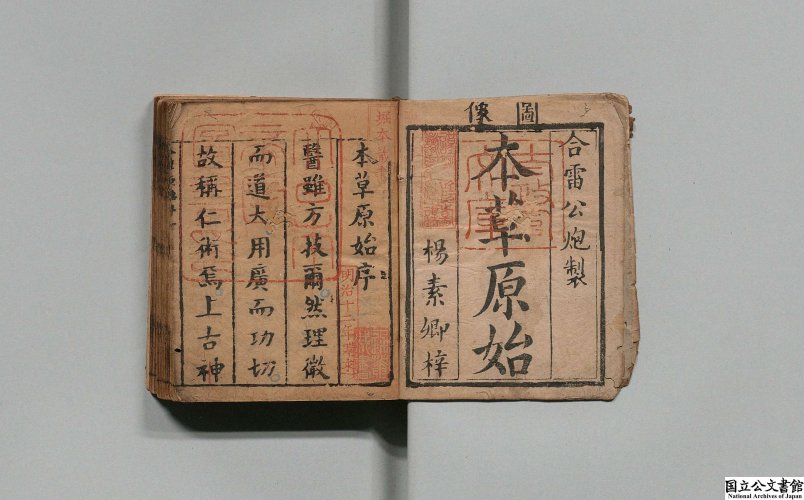 圖像
合雷公炮製
本草原始
楊素卿梓
本草原始序
醫雖方技爾然理微
而道大用廣而功切
故稱仁術焉上古神
明治十二年購求
国立公文書館
National Archives of Japan